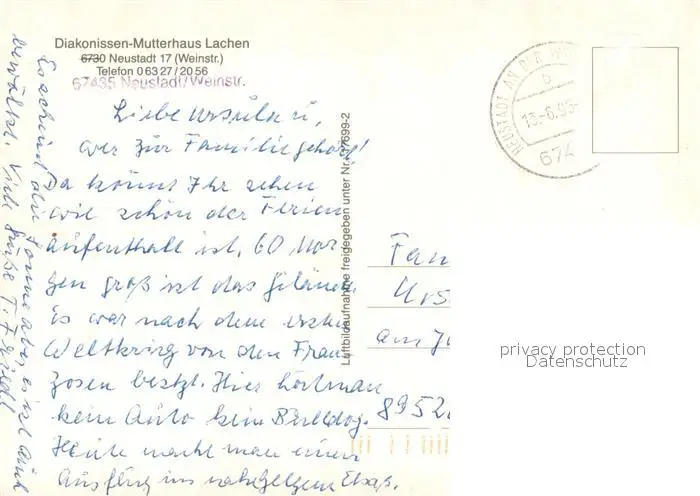 Diakonissen-Mutterhaus Lachen
6730 Neustadt 17 (Weinstr.)
Telefon 0 63 27 / 20 56
67435 Neustadt/Weinstr.
Liebe Ursula u,
wer zur Familie gehört!
Da könnt Ihr sehen
wie schön der Ferien
aufenthalt ist, 60 Mor
gen groß ist das Gelände
Es war nach dem ersten
Weltkrieg von den Fran
zosen besetzt. Hier hört man
kein Auto kein Bulldog.
Heute macht man einen
Ausflug ins nahegelegene Elsaß.
Es scheint die Sonne aber es ist auch
bewölkt. Viele Grüße T.
Luftbildaufnahme freigegeben unter Nr.
NEUSTADT AN DER
b
13.-6.95-
674
Fam
Urs
am
8952
privacy protection
Datenschutz